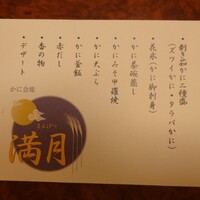 ・剥き出かに二種盛
（ズワイかに・タラバかに）
・花氷（かに御刺身）
・かに茶碗蒸し
・かにみそ甲羅焼
・かに天ぷら
・かに釜飯
・赤だし
・香の物
・デザート
かに会席
まんげつ
満月